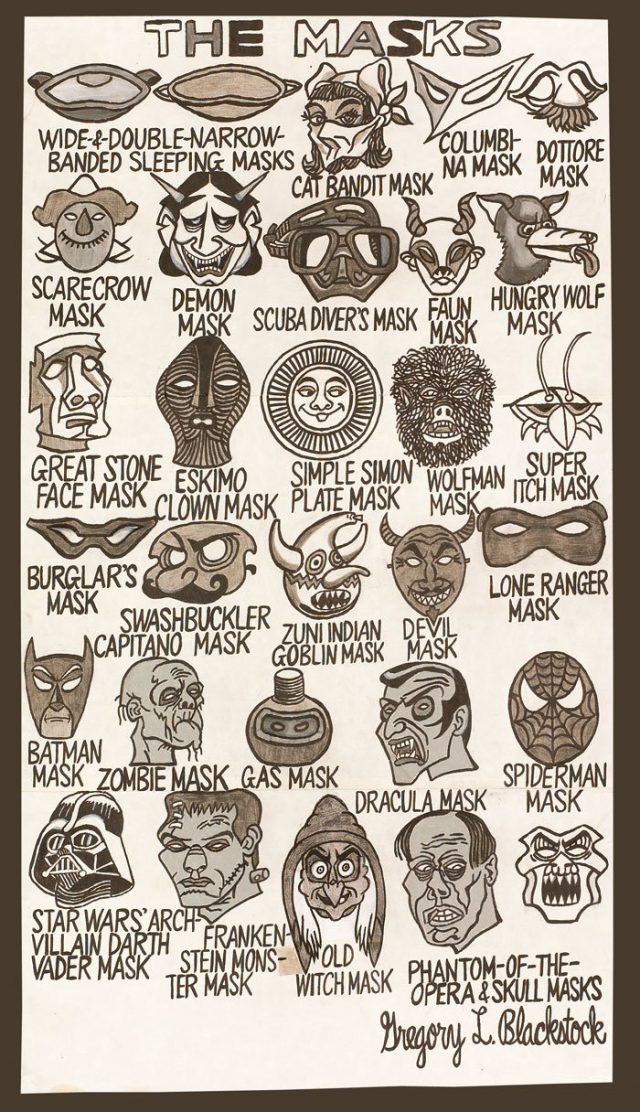 THE MASKS
WIDE-&-DOUBLE-NARROW-
BANDED SLEEPING MASKS
CAT BANDIT MASK
COLUMBI-
NA MASK
DOTTORE
MASK
SCARECROW
MASK
DEMON
MASK
SCUBA DIVER'S MASK
FAUN
MASK
HUNGRY WOLF
MASK
GREAT STONE
FACE MASK
ESKIMO
CLOWN MASK
SIMPLE SIMON
PLATE MASK
WOLFMAN
MASK
SUPER
ITCH MASK
BURGLAR'S
MASK
SWASHBUCKLER
CAPITANO MASK
ZUNI INDIAN
GOBLIN MASK
DEVIL
MASK
LONE RANGER
MASK
BATMAN
MASK
ZOMBIE MASK
GAS MASK
DRACULA MASK
SPIDERMAN
MASK
STAR WARS' ARCH-
VILLAIN DARTH
VADER MASK
FRANKEN-
STEIN MONS-
TER MASK
OLD
WITCH MASK
PHANTOM-OF-THE-
OPERA & SKULL MASKS
Gregory L. Blackstock